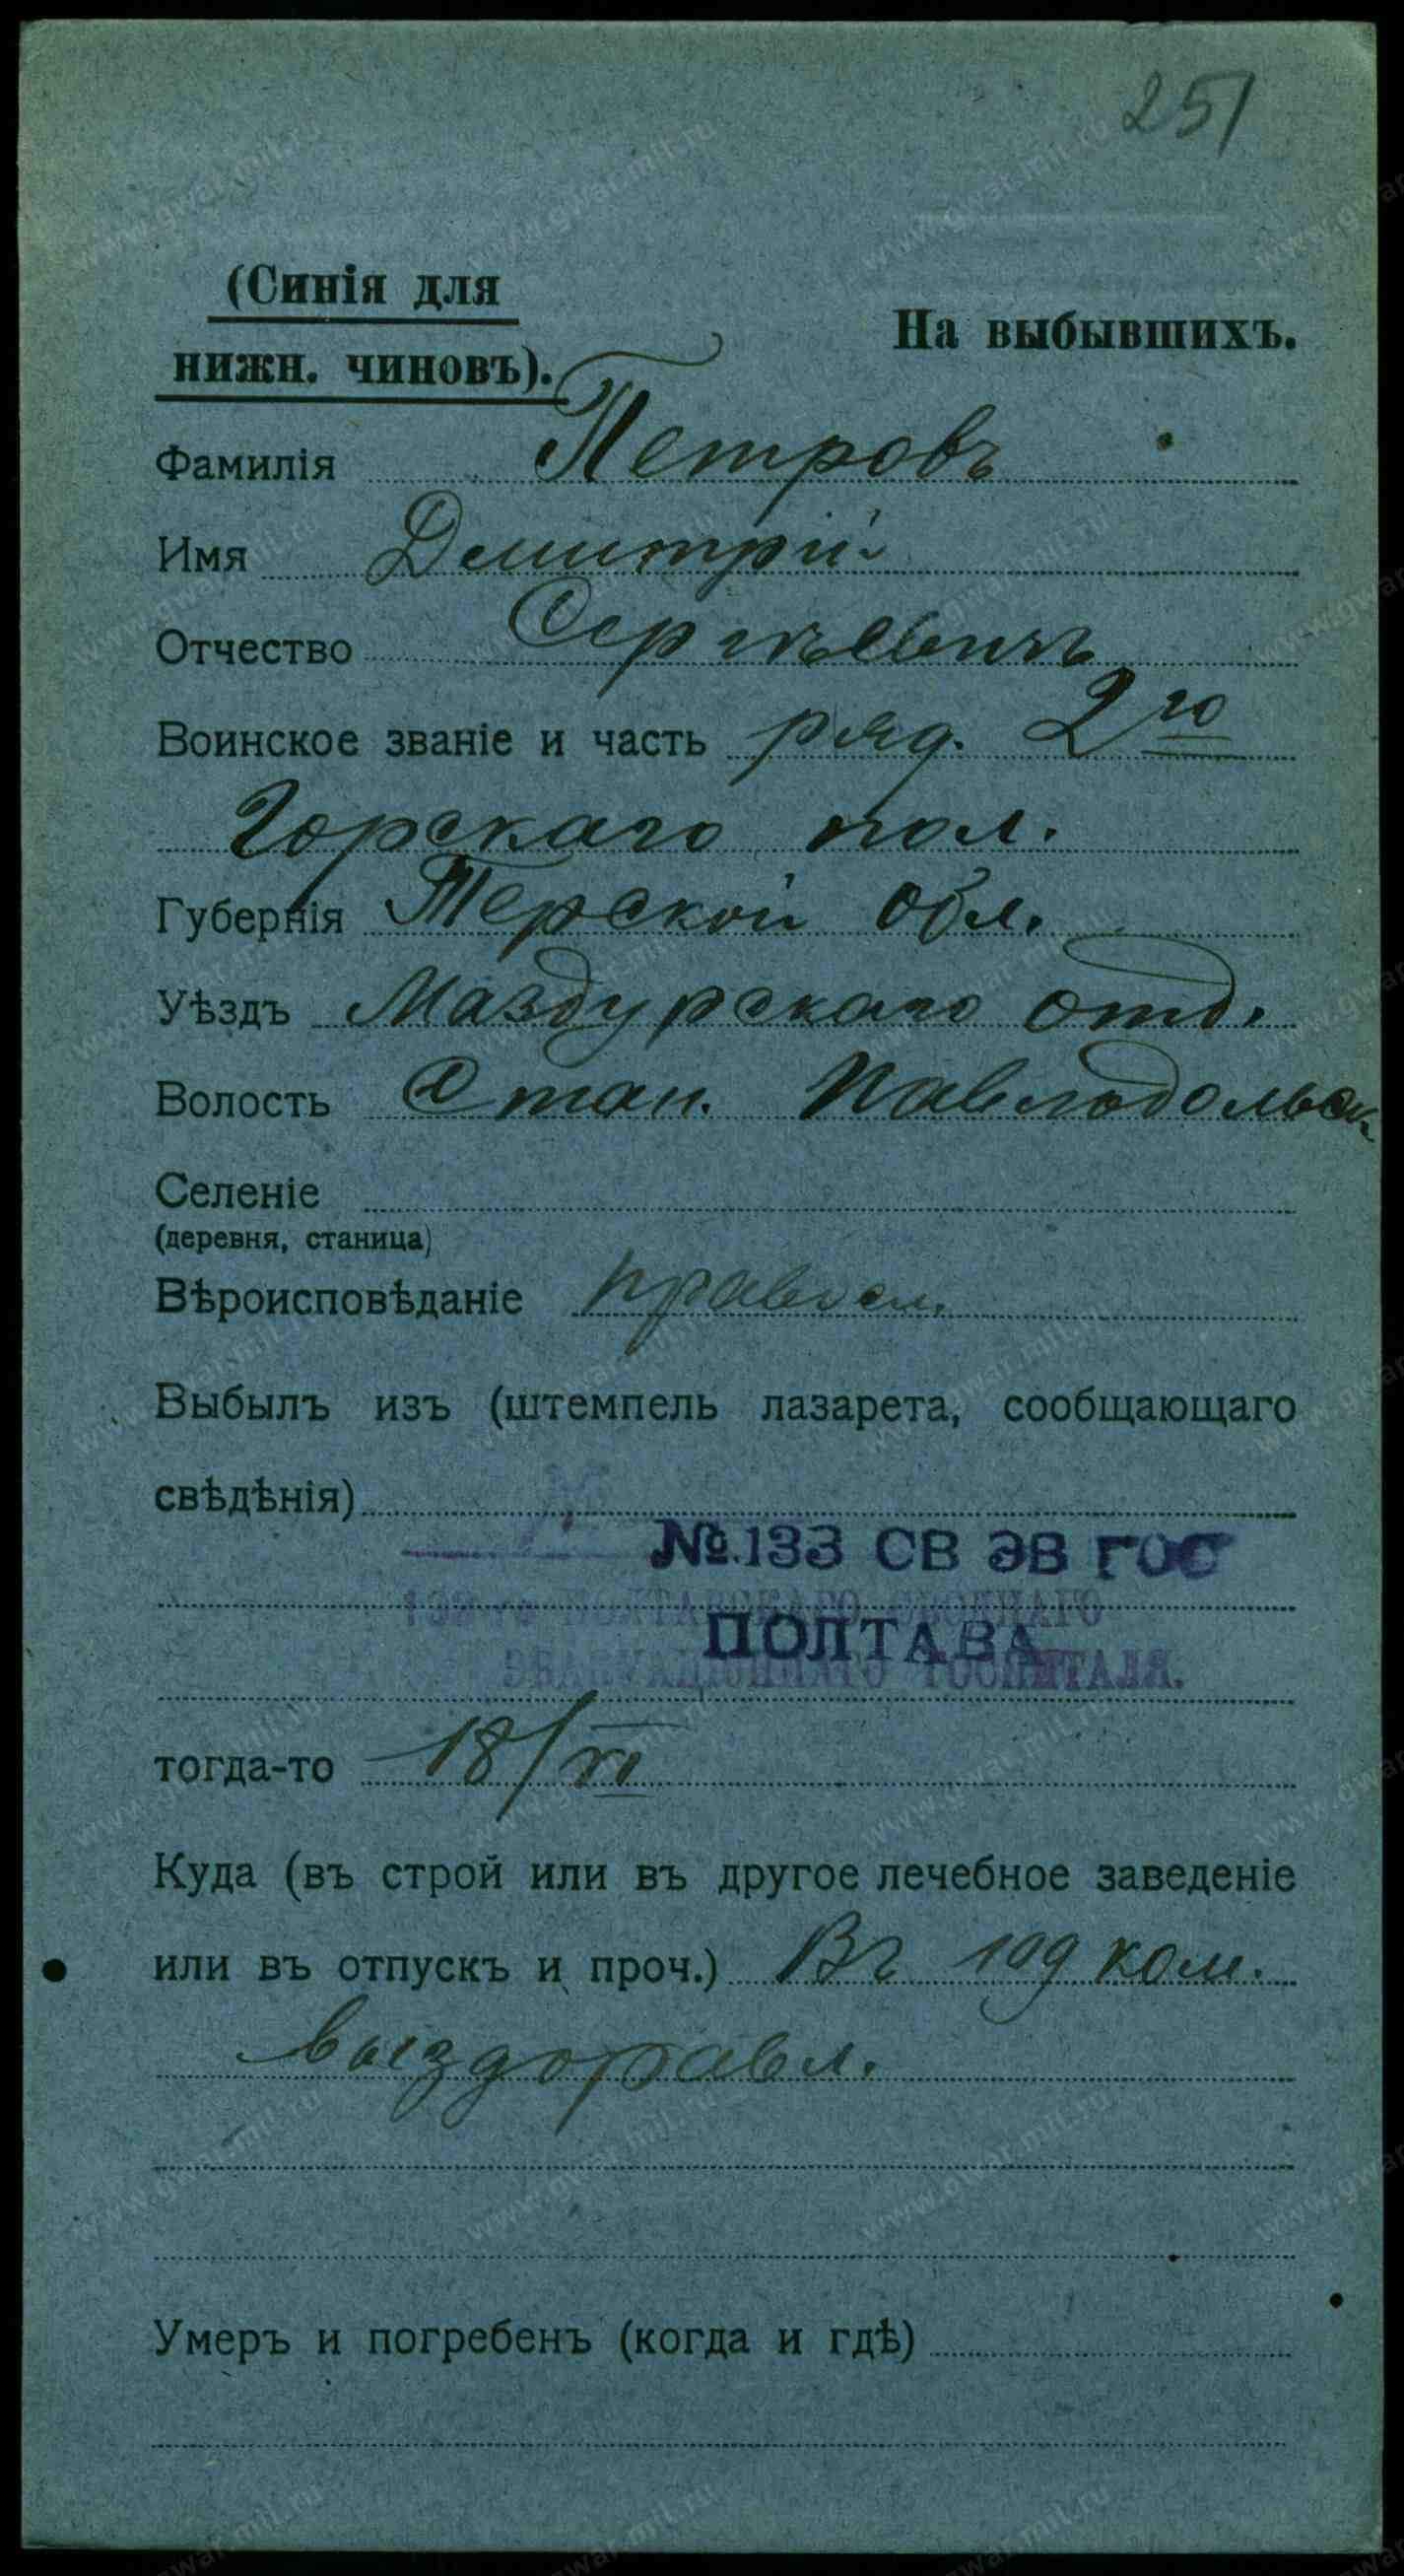 251
(Синія для
нижн. чиновъ).
На выбывшихъ.
Фамилія Петровъ
Имя Дмитрій
Отчество Сергѣевичъ
Воинское званіе и часть ряд. 2го
Горскаго пол.
Губернія Терской Обл.
Уѣздъ Маздурскаго отд.
Волость Стан. Павлодольск
Селеніе
(деревня, станица)
Вѣроисповѣданіе правосл.
Выбылъ изъ (штемпель лазарета, сообщающаго
свѣдѣнія)
№133 СВ ЭВ ГОС
133-го ПОЛТАВСКАГО СВОДНАГО
ПОЛТАВА
ЭВАКУАЦІОННАГО ГОСПИТАЛЯ.
тогда-то 18/XI
Куда (въ строй или въ другое лечебное заведеніе
или въ отпускъ и проч.) Въ 109 ком.
выздоравл.
Умеръ и погребенъ (когда и гдѣ)
www.gwar.mil.ru